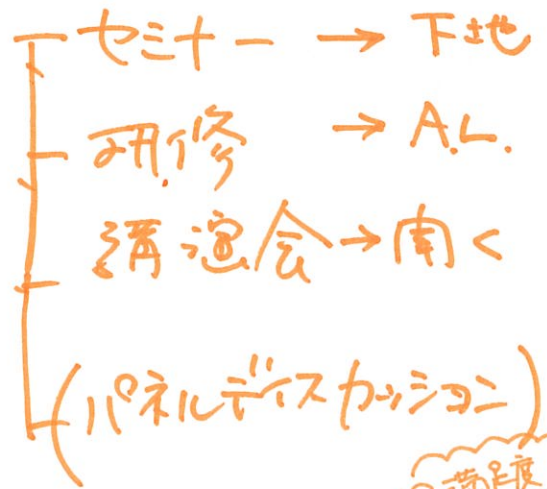 セミナー → 下地
研修 → A.L.
講演会 → 聞く
(パネルディスカッション)
満足度